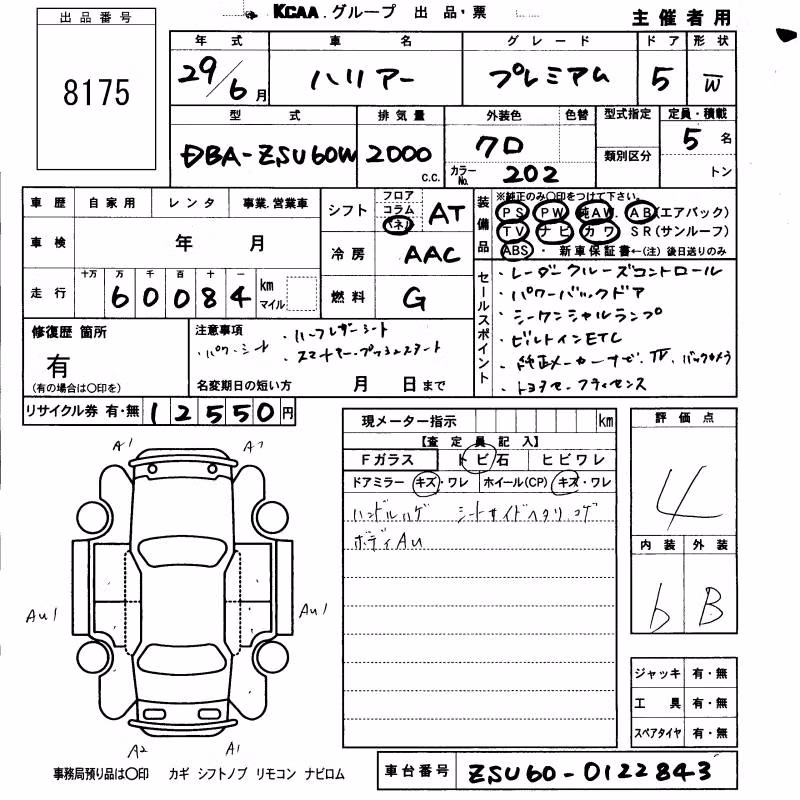 KCAA.グループ 出品・票
主催者用
出品番号
8175
年式 車名 グレード ドア 形状
29/6月 ハリアー プレミアム 5 W
型式 排気量 外装色 色替 型式指定 定員・積載
DBA-ZSU60W 2000 c.c. クロ 類別区分 5名
カラーNo. 202 トン
車歴 自家用 レンタ 事業.営業車
車検 年 月
走行 十万 万 千 百 十 一 km マイル
60084
シフト フロア コラム パネル AT
冷房 AAC
燃料 G
装備品
※純正のみ〇印をつけて下さい。
PS PW 純AW. AB(エアバック)
TV ナビ カワ SR(サンルーフ)
ABS ・ 新車保証書←(注) 後日送りのみ
セールスポイント
・レーダークルーズコントロール
・パワーバックドア
・シーケンシャルランプ
・ビルトインETC
・純正メーカーナビ TV. バックカメラ
・トヨタセーフティセンス
修復歴 箇所
有
(有の場合は〇印を)
注意事項
・パワーシート
・ハーフレザーシート
・スマートキー・プッシュスタート
名変期日の短い方 月 日まで
リサイクル券 有・無 12550円
現メーター指示 km
【査定員記入】
Fガラス トビ石 ヒビワレ
ドアミラー キズ・ワレ ホイール(CP) キズ・ワレ
ハンドルハゲ シートサイドヘタリ.コゲ
ボディAu
評価点
4
内装 外装
b B
ジャッキ 有・無
工具 有・無
スペアタイヤ 有・無
A1 A1
Au1 Au1
A2 A1
事務局預り品は〇印 カギ シフトノブ リモコン ナビロム
車台番号 ZSU60-0122843